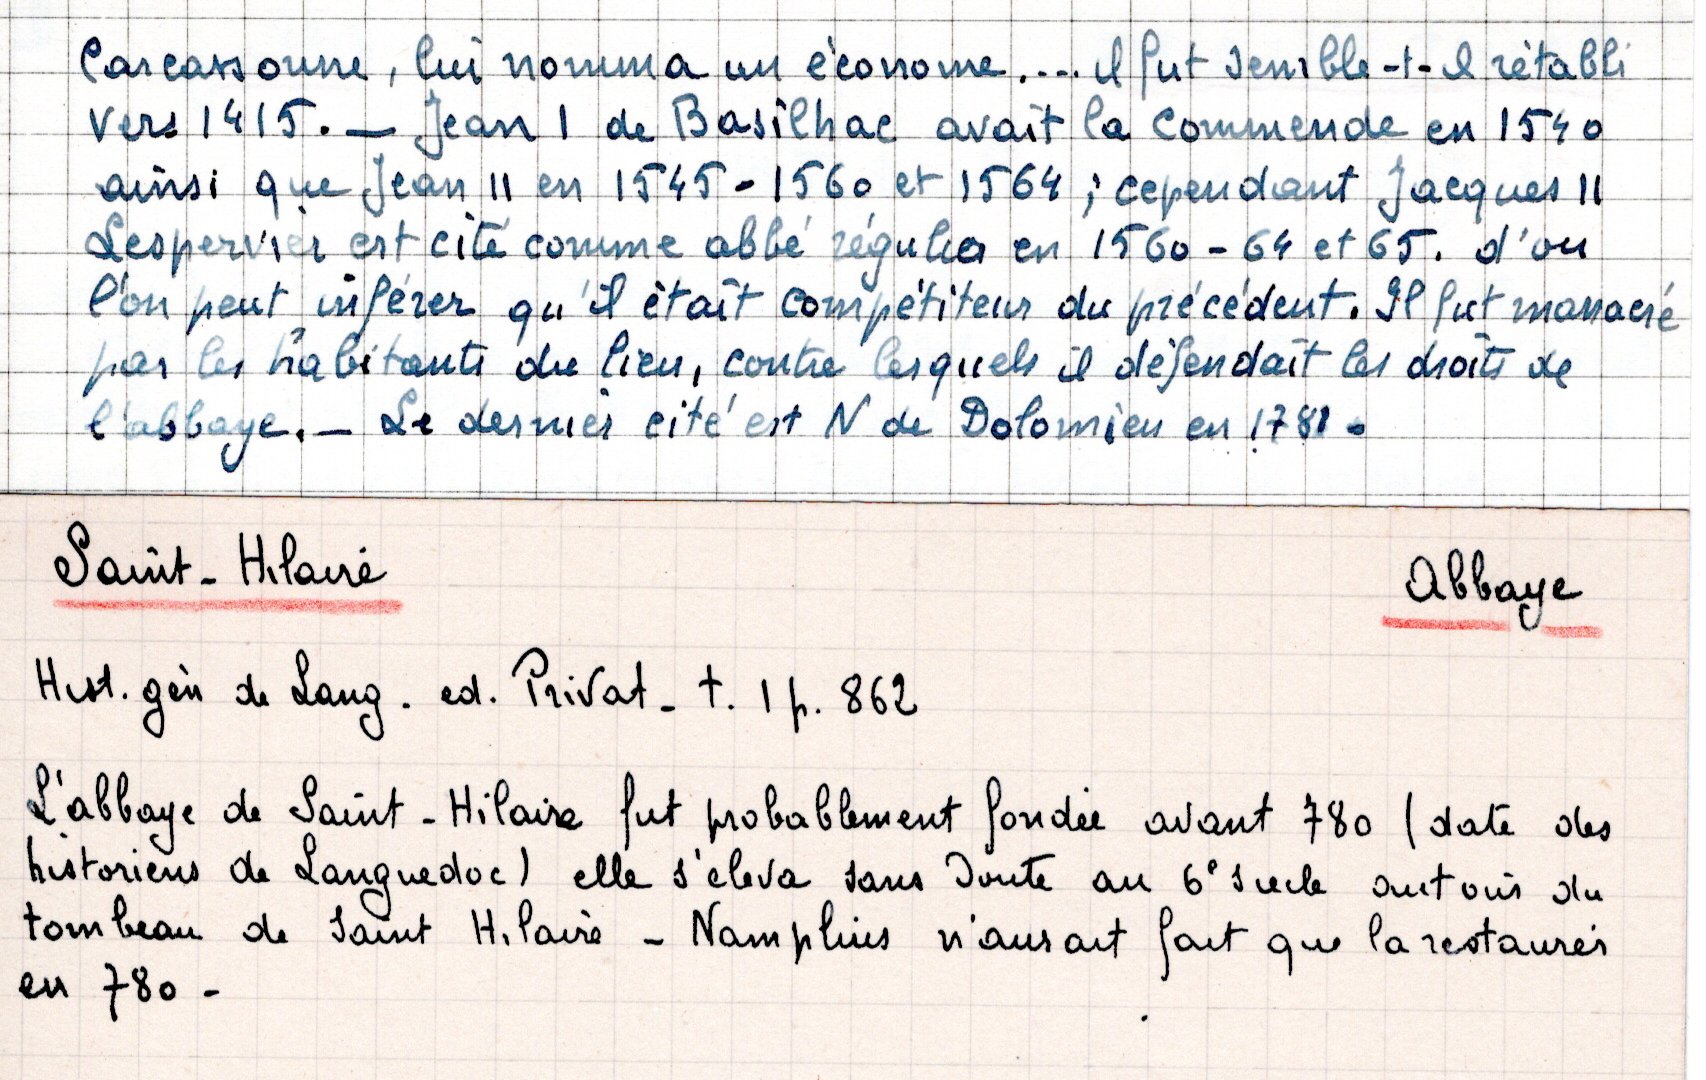 Carcassonne, lui nomma un économe.... il fut semble-t-il rétabli
vers 1415. — Jean I de Basilhac avait la commende en 1540
ainsi que Jean II en 1545 - 1560 et 1564 ; cependant Jacques II
Lespervier est cité comme abbé régulier en 1560 - 64 et 65. d'ou
l'on peut inférer qu'il était compétiteur du précédent. Il fut massacré
par les habitants du lieu, contre lesquels il défendait les droits de
l'abbaye. — Le dernier cité est N de Dolomieu en 1781.
Saint - Hilaire Abbaye
Hist. gén de Lang. ed. Privat - t. 1 p. 862
L'abbaye de Saint - Hilaire fut probablement fondée avant 780 (date des
historiens de Languedoc) elle s'éleva sans doute au 6° siecle autour du
tombeau de Saint Hilaire - Namphius n'aurait fait que la restaurer
en 780 -